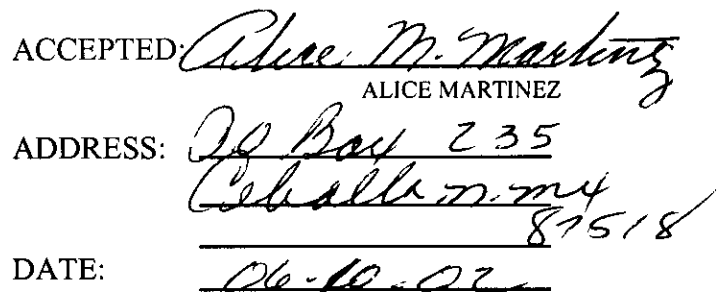 ACCEPTED: Alice M. Martinez
ALICE MARTINEZ
ADDRESS: PO Box 235
Cebolla n. mex
87518
DATE: 06-10-02